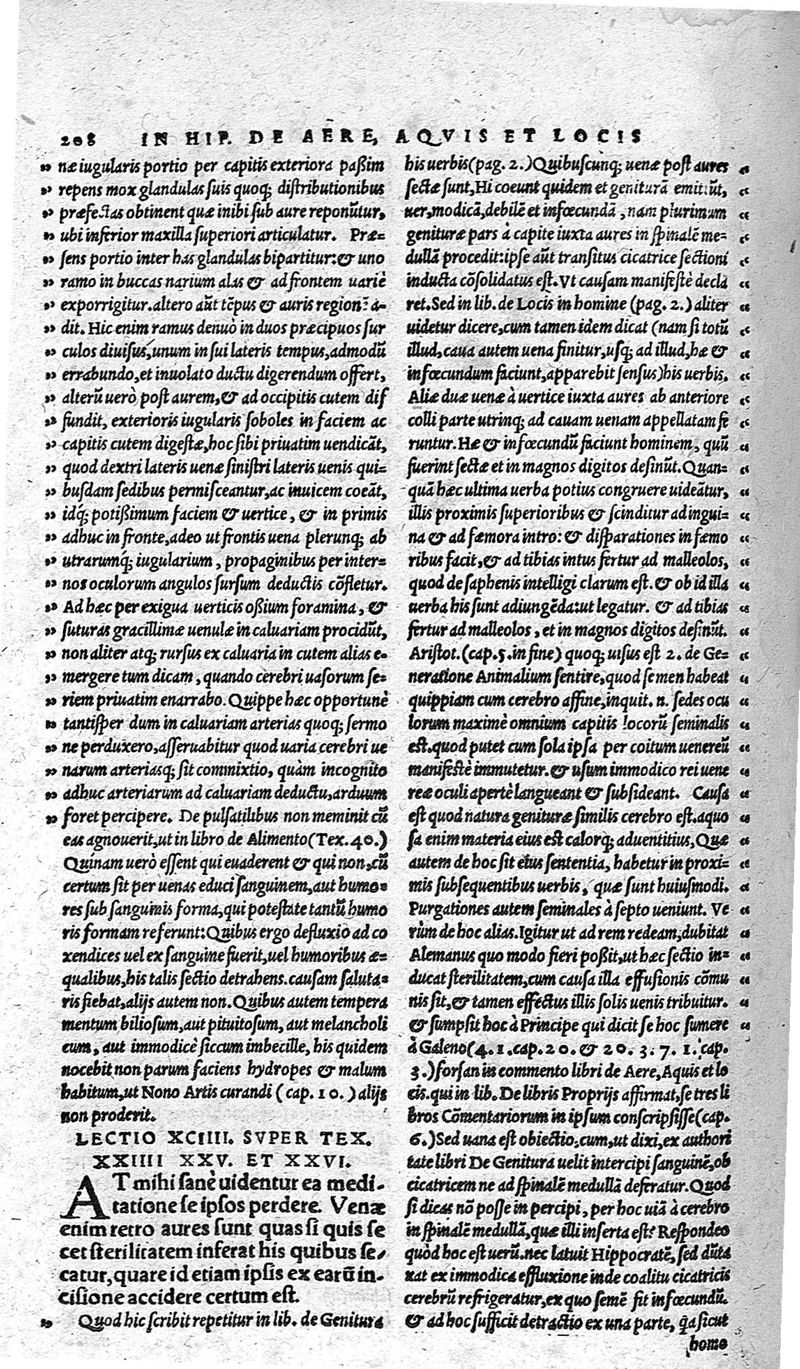 208 IN HIP. DE AERE, AQVIS ET LOCIS
„ næ iugularis portio per capitis exteriora paßim
„ repens mox glandulas suis quoq; distributionibus
„ præfectas obtinent quæ inibi sub aure reponũtur,
„ ubi inferior maxilla superiori articulatur. Præ=
„ sens portio inter has glandulas bipartitur: & uno
„ ramo in buccas narium alas & ad frontem uariè
„ exporrigitur. altero aũt tẽpus & auris regionẽ a-
„ dit. Hic enim ramus denuò in duos præcipuos sur
„ culos diuisus, unum in sui lateris tempus, admodũ
„ errabundo, et inuolato ductu digerendum offert,
„ alterũ uerò post aurem, & ad occipitis cutem dif
„ fundit, exterioris iugularis soboles in faciem ac
„ capitis cutem digestæ, hoc sibi priuatim uendicãt,
„ quod dextri lateris uenæ sinistri lateris uenis qui=
„ busdam sedibus permisceantur, ac inuicem coeãt,
„ idq; potißimum faciem & uertice, & in primis
„ adhuc in fronte, adeo ut frontis uena plerunq; ab
„ utrarumq; iugularium, propaginibus per inter=
„ nos oculorum angulos sursum deductis cõfletur.
„ Ad hæc per exigua uerticis oßium foramina, &
„ suturas gracillimæ uenulæ in caluariam procidũt,
„ non aliter atq; rursus ex caluaria in cutem alias e-
„ mergere tum dicam, quando cerebri uasorum se=
„ riem priuatim enarrabo. Quippe hæc opportunè
„ tantisper dum in caluariam arterias quoq; sermo
„ ne perduxero, asseruabitur quod uaria cerebri ue
„ narum arteriasq; sit commixtio, quàm incognito
„ adhuc arteriarum ad caluariam deductu, arduum
„ foret percipere. De pulsatilibus non meminit cũ
eas agnouerit, ut in libro de Alimento (Tex. 40.)
Quinam uerò essent qui euaderent & qui non, cũ
certum sit per uenas educi sanguinem, aut humo=
res sub sanguinis forma, qui potestate tantũ humo
ris formam referunt: Quibus ergo defluxio ad co
xendices uel ex sanguine fuerit, uel humoribus æ=
qualibus, his talis sectio detrahens. causam saluta=
ris fiebat, alijs autem non. Quibus autem tempera
mentum biliosum, aut pituitosum, aut melancholi
cum, aut immodicè siccum imbecille, his quidem
nocebit non parum faciens hydropes & malum
habitum, ut Nono Artis curandi (cap. 10.) alijs
non proderit.
LECTIO XCIIII. SVPER TEX.
XXIIII XXV. ET XXVI.
AT mihi sanè uidentur ea medi-
tatione se ipsos perdere. Venæ
enim retro aures sunt quas si quis se
cet sterilitatem inferat his quibus se-
catur, quare id etiam ipsis ex earũ in-
cisione accidere certum est.
„ Quod hic scribit repetitur in lib. de Genitura
his uerbis (pag. 2.) Quibuscunq; uenæ post aures „
sectæ sunt, Hi coeunt quidem et geniturã emittũt, „
uer, modicã, debilẽ et infœcundã, nam plurimum „
genituræ pars à capite iuxta aures in spinalẽ me= „
dullã procedit: ipse aũt transitus cicatrice sectioni „
inducta cõsolidatus est. Vt causam manifestè decla „
ret. Sed in lib. de Locis in homine (pag. 2.) aliter „
uidetur dicere, cum tamen idem dicat (nam si totũ „
illud, caua autem uena finitur, usq; ad illud, hæ & „
infœcundum faciunt, apparebit sensus) his uerbis. „
Aliæ duæ uenæ à uertice iuxta aures ab anteriore „
colli parte utrinq; ad cauam uenam appellatam fe „
runtur. Hæ & infœcundũ faciunt hominem, quũ „
fuerint sectæ et in magnos digitos desinũt. Quan= „
quã hæc ultima uerba potius congruere uideãtur, „
illis proximis superioribus & scinditur ad ingui= „
na & ad fæmora intro: & disparationes in fæmo „
ribus facit, & ad tibias intus fertur ad malleolos, „
quod de saphenis intelligi clarum est. & ob id illa „
uerba his sunt adiungẽda: ut legatur. & ad tibias „
fertur ad malleolos, et in magnos digitos desinũt. „
Aristot. (cap. 5. in fine) quoq; uisus est 2. de Ge= „
neratione Animalium sentire, quod semen habeat „
quippiam cum cerebro affine, inquit. n. sedes ocu „
lorum maximè omnium capitis locorũ seminalis „
est. quod putet cum sola ipsa per coitum uenereũ „
manifestè immutetur. & usum immodico rei uene „
reæ oculi apertè langueant & subsideant. Causa „
est quod natura genituræ similis cerebro est. aquo „
sa enim materia eius est calorq; aduentitius, Quæ „
autem de hoc sit eius sententia, habetur in proxi= „
mis subsequentibus uerbis, quæ sunt huiusmodi. „
Purgationes autem seminales à septo ueniunt. Ve „
rùm de hoc alias. Igitur ut ad rem redeam, dubitat „
Alemanus quo modo fieri poßit, ut hæc sectio in= „
ducat sterilitatem, cum causa illa effusionis cõmu „
nis sit, & tamen effectus illis solis uenis tribuitur. „
& sumpsit hoc à Principe qui dicit se hoc sumere „
à Galeno (4. 1. cap. 20. & 20. 3. 7. 1. cap.
3.) forsan in commento libri de Aere, Aquis et lo
cis. qui in lib. De libris Proprijs affirmat, se tres li
bros Cõmentariorum in ipsum conscripsisse (cap.
6.) Sed uana est obiectio, cum, ut dixi, ex authori
tate libri De Genitura uelit intercipi sanguinẽ, ob
cicatricem ne ad spinalẽ medullã deferatur. Quod
si dicas nõ posse in percipi, per hoc uiã à cerebro
in spinalẽ medullã, quæ illi inserta est? Respondeo
quòd hoc est uerũ. nec latuit Hippocratẽ, sed dũta
xat ex immodica effluxione inde coalitu cicatricis
cerebrũ refrigeratur, ex quo semẽ fit infœcundũ.
& ad hoc sufficit detractio ex una parte, q̃a sicut
homo